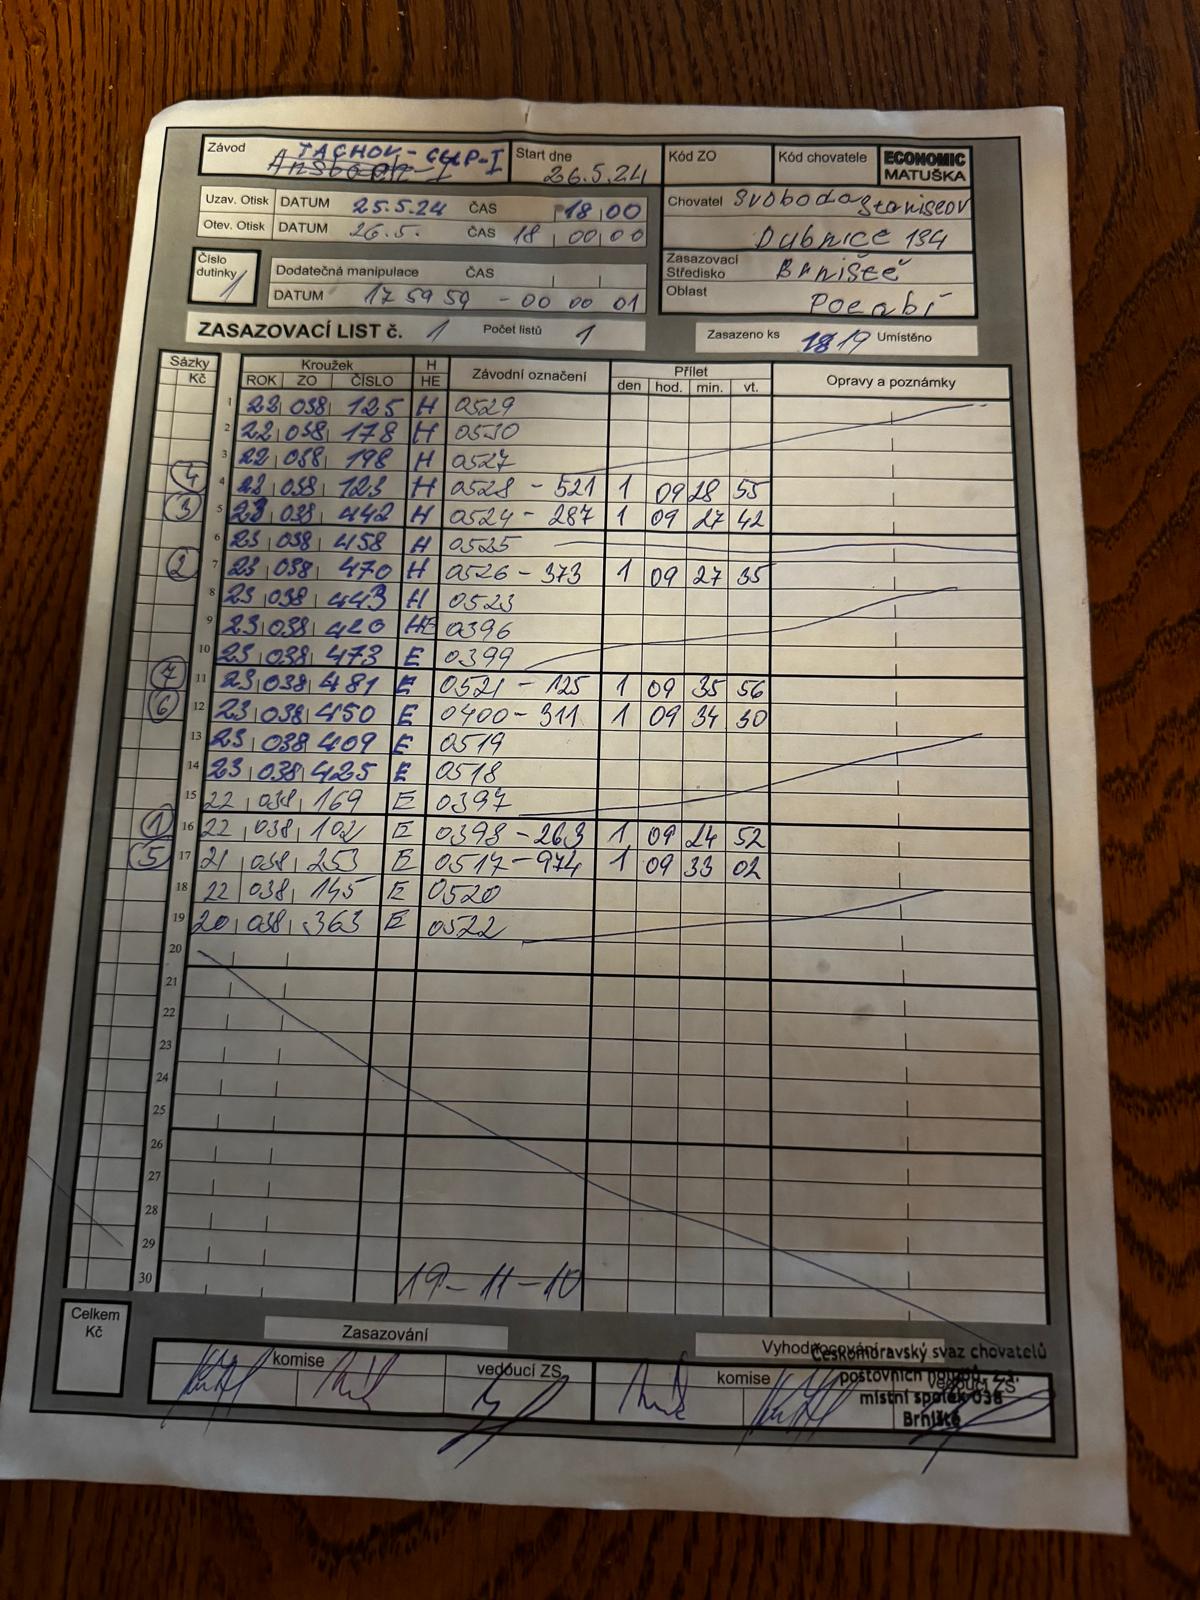 Závod TACHOV - CULP-I Start dne 26.5.24 Kód ZO Kód chovatele ECONOMIC MATUŠKA
Ansbach - I
Uzav. Otisk DATUM 25.5.24 ČAS 18 00
Otev. Otisk DATUM 26.5. ČAS 18 00 00
Chovatel Svoboda Stanislav
Dubnice 194
Číslo dutinky 1
Dodatečná manipulace ČAS
DATUM 17 59 59 - 00 00 01
Zasazovací Středisko Brniště
Oblast Polabí
ZASAZOVACÍ LIST č. 1 Počet listů 1 Zasazeno ks 19 Umístěno
Sázky Kč Kroužek H HE Závodní označení Přílet Opravy a poznámky
ROK ZO ČÍSLO den hod. min. vt.
1 22 038 125 H 0529
2 22 038 178 H 0530
3 22 038 198 H 0527
4 4 22 038 123 H 0528 - 521 1 09 28 55
3 5 23 038 442 H 0524 - 287 1 09 27 42
6 23 038 458 H 0525
2 7 23 038 470 H 0526 - 373 1 09 27 35
8 23 038 443 H 0523
9 23 038 420 HE 0396
10 23 038 473 E 0399
7 11 23 038 481 E 0521 - 125 1 09 35 56
6 12 23 038 450 E 0400 - 311 1 09 34 30
13 23 038 409 E 0519
14 23 038 425 E 0518
15 22 038 169 E 0397
1 16 22 038 102 E 0398 - 263 1 09 24 52
5 17 21 038 253 E 0517 - 974 1 09 33 02
18 22 038 145 E 0520
19 20 038 363 E 0522
20
21
22
23
24
25
26
27
28
29
30
19 - 11 - 10
Celkem Kč
Zasazování Vyhodnocování
komise vedoucí ZS komise vedoucí ZS
Českomoravský svaz chovatelů
poštovních holubů, z.s.
místní spolek 038
Brniště